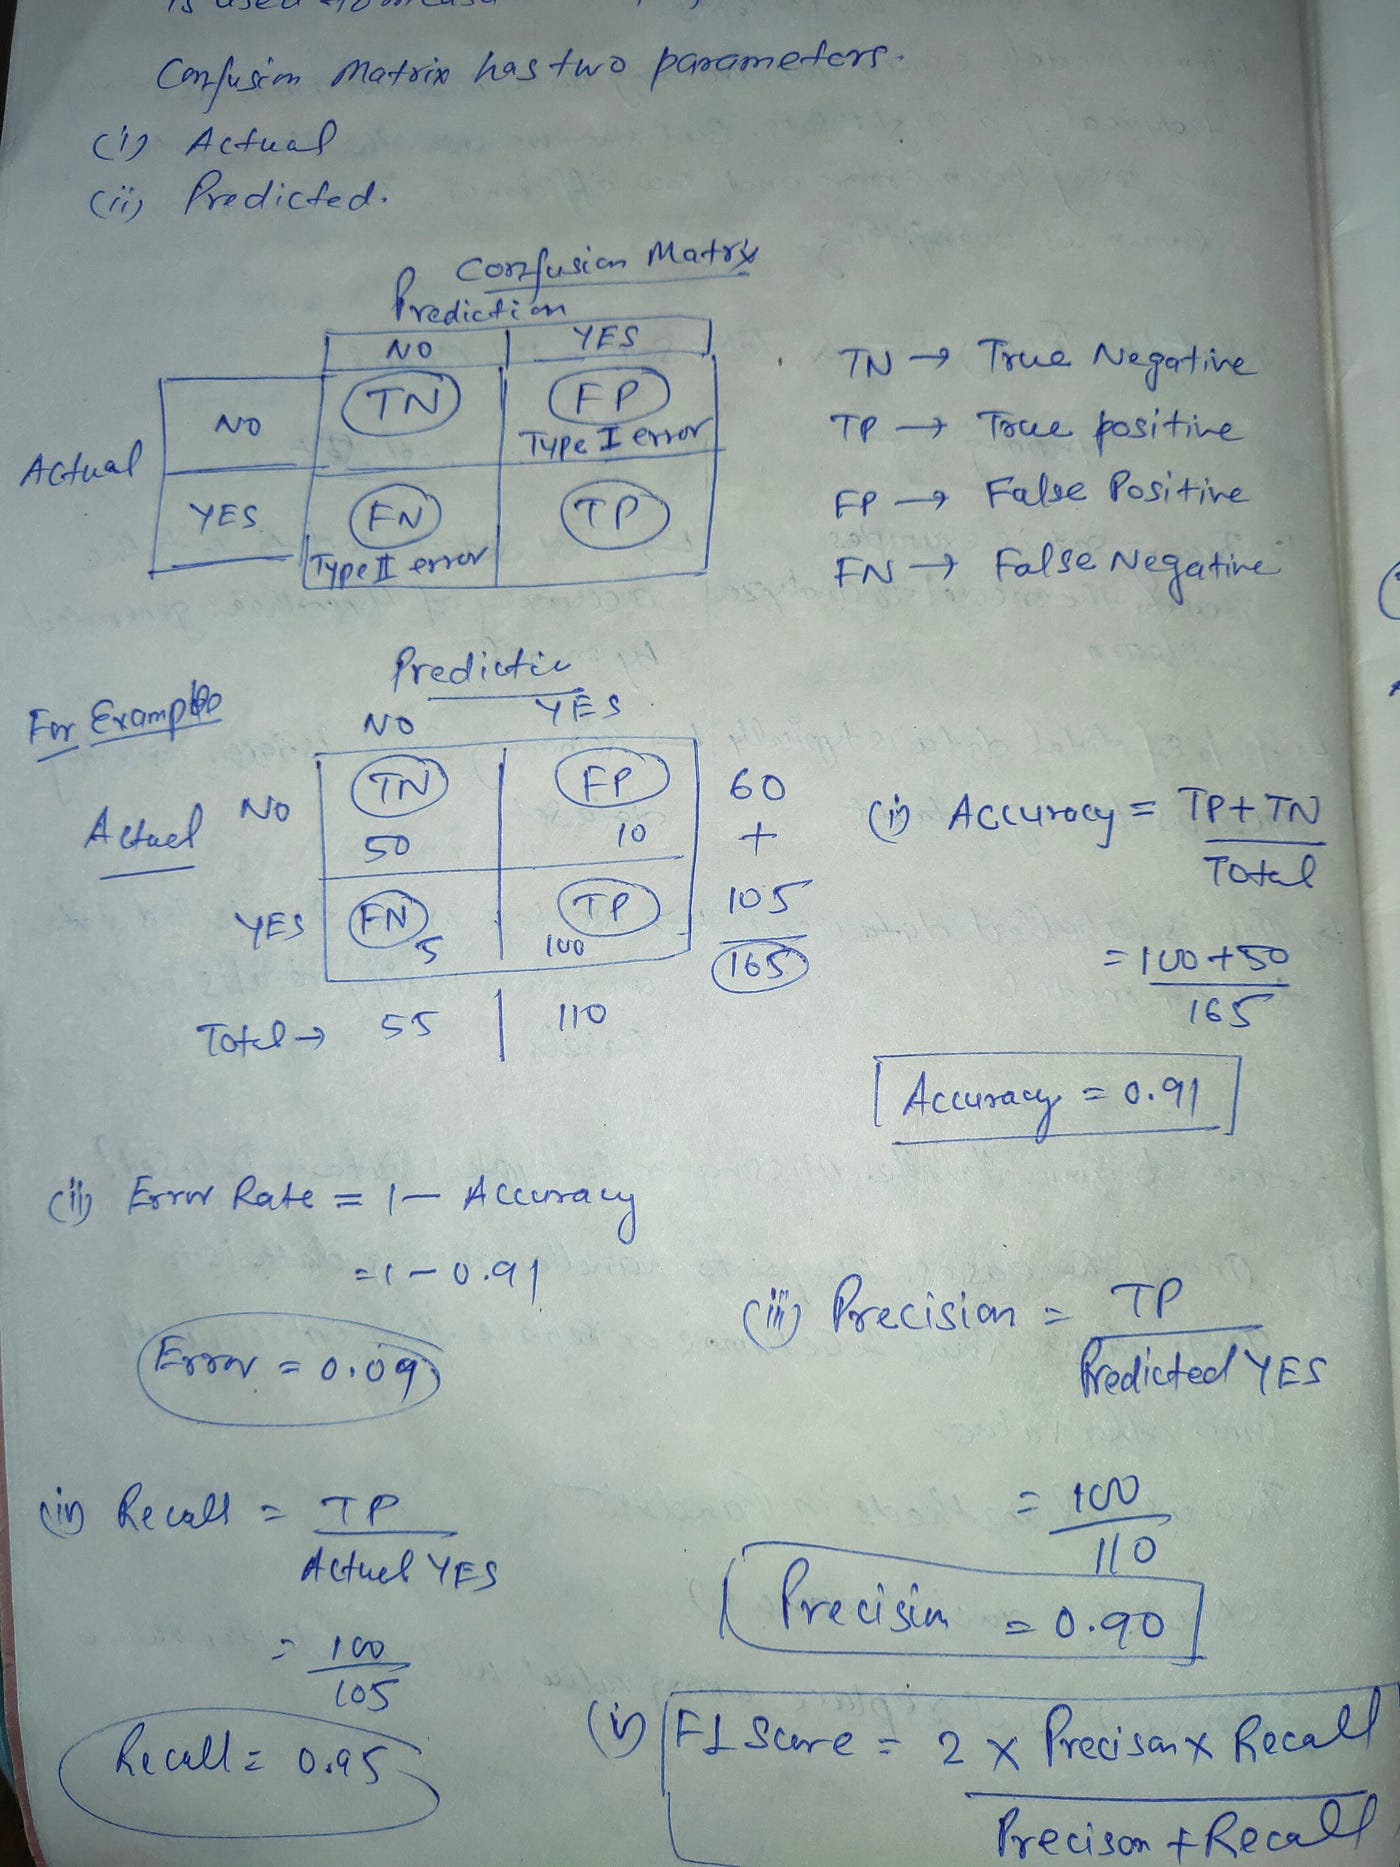 is used to
Confusion Matrix has two parameters.
(i) Actual
(ii) Predicted.
Confusion Matrix
Prediction
NO YES
Actual NO TN FP
Type I error
YES FN TP
Type II error
TN → True Negative
TP → True positive
FP → False Positive
FN → False Negative
For Example
Predictic
NO YES
Actuel NO TN FP 60
50 10 +
YES FN TP 105
5 100 165
Totel → 55 110
(i) Accuracy = TP + TN
Totel
= 100 + 50
165
Accuracy = 0.91
(ii) Error Rate = 1 - Accuracy
= 1 - 0.91
Error = 0.09
(iii) Precision = TP
Predicted YES
= 100
110
Precisin = 0.90
(iv) Recall = TP
Actuel YES
= 100
105
Recall = 0.95
(v) F1 Score = 2 x Precison x Recall
Precison + Recall